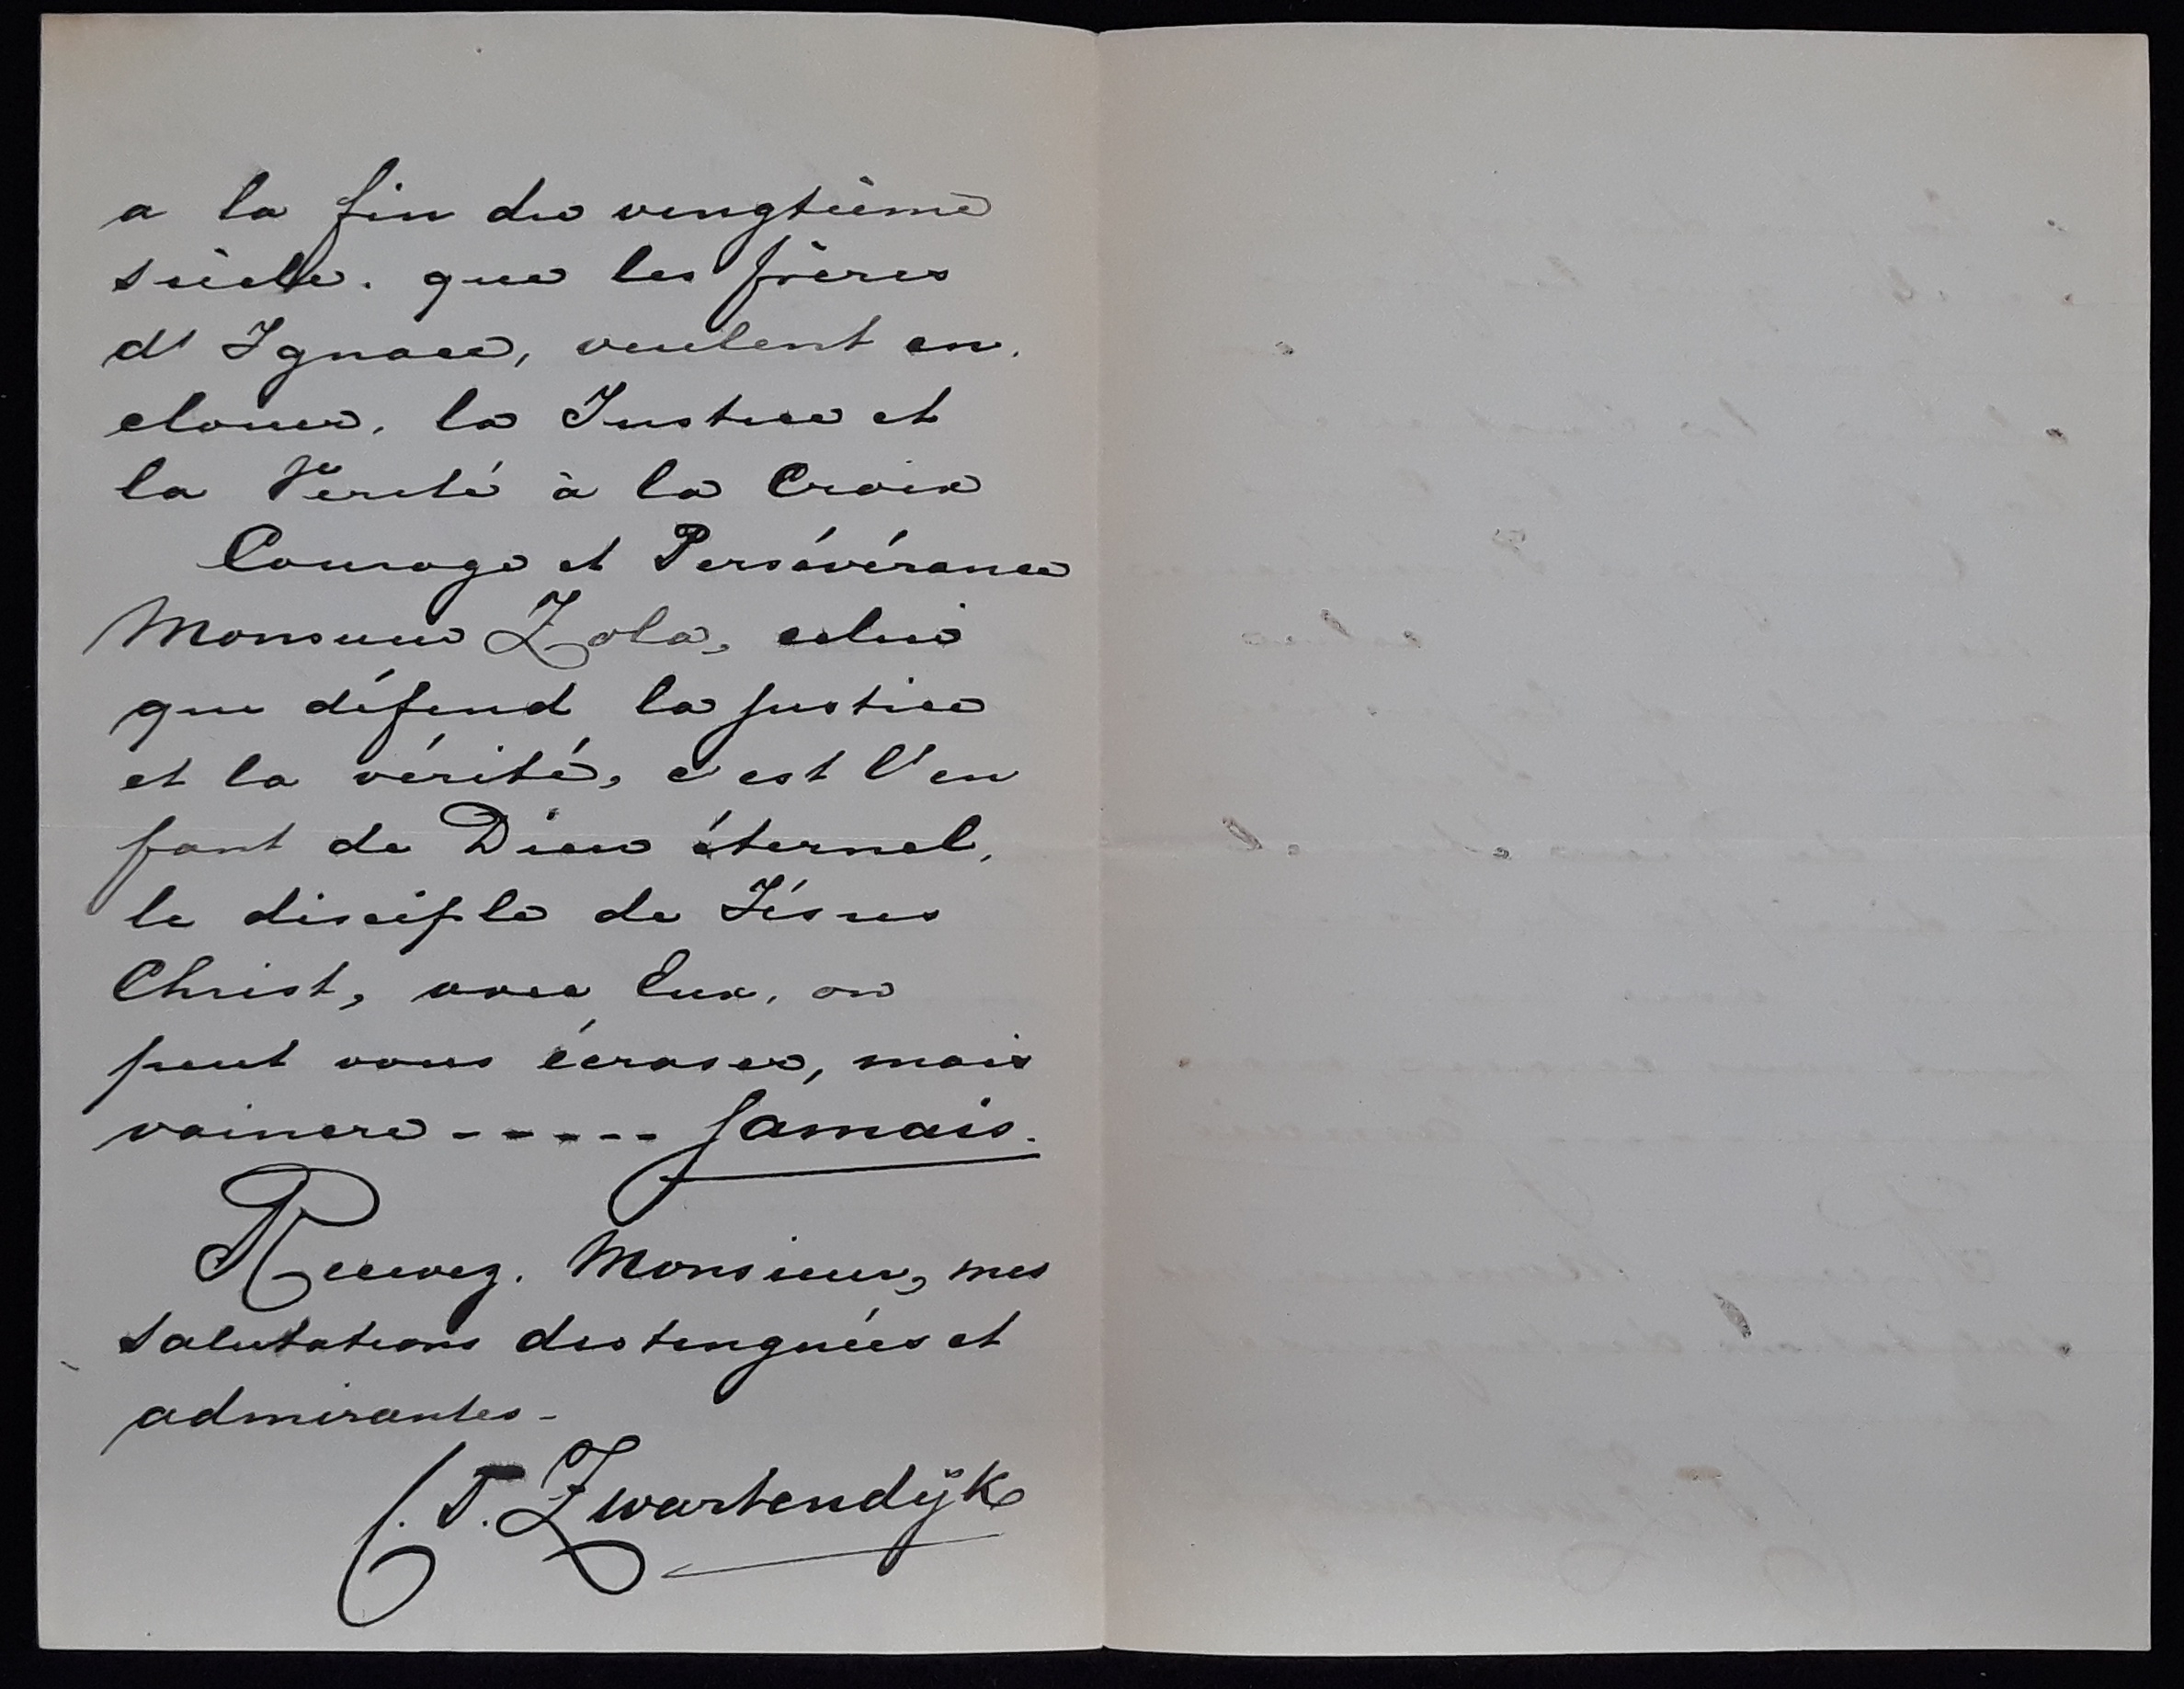 a la fin du vingtième
siècle. que les frères
d' Ignace, veulent en.
clouer, la Justice et
la Verité à la Croix
Courage et Persévérance
Monsieur Zola, celui
que défend la justice
et la vérité, c'est l'en
fant de Dieu éternel,
le disciple de Jésus
Christ, avec Eux, on
peut vous écraser, mais
vaincre ----- Jamais.
Recevez. Monsieur, mes
salutations distinguées et
admirantes-
J. T. Zwartendijk